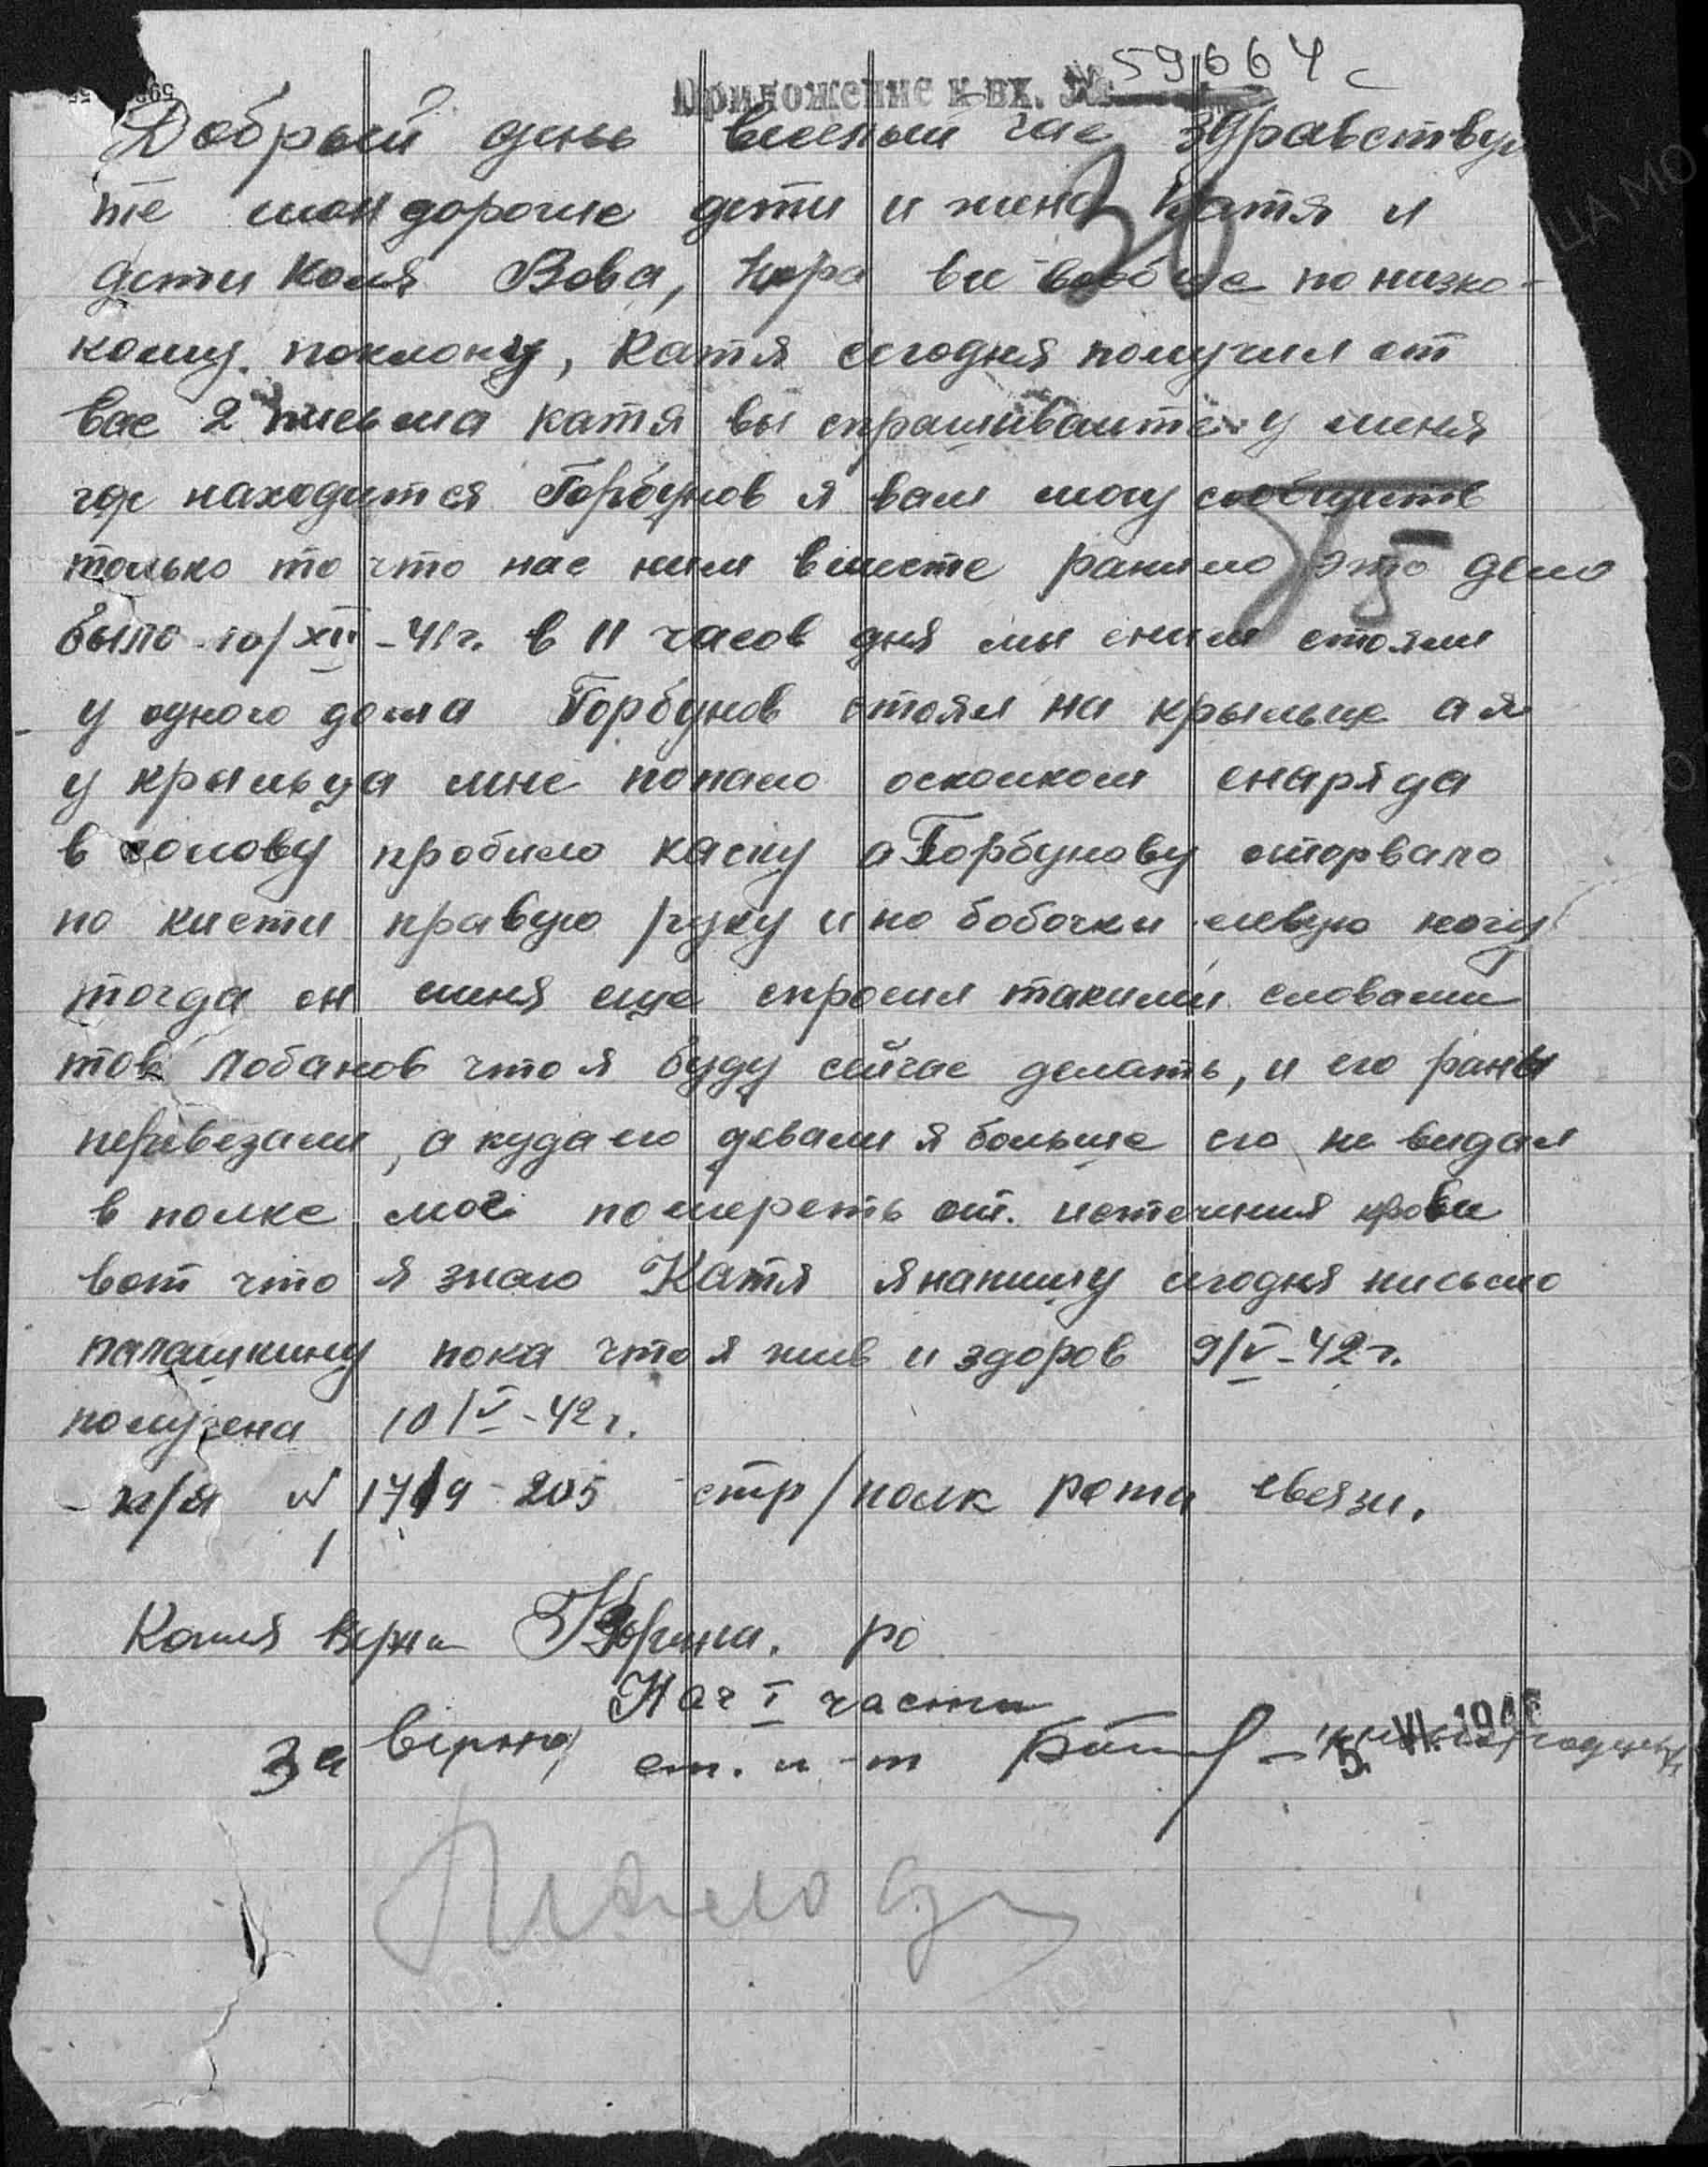 59664с
Приложение к вх. №
Добрый день веселый час здравствуй
те мои дорогие дети и жина Катя и
дети Коля Вова, Нюра вы вообще по низко-
кому поклону, Катя сегодня получил от
вас 2 письма катя вы спрашиваите у меня
где находится Горбунов я вам могу сообщить
только то что нас ним вместе ранило это дело
было 10/XII-41г. в 11 часов дня мы сним стояли
у одного дома Горбунов стоял на крыльце а я
у крыльца мне попало осколком снаряда
в голову пробило каску а Горбунову оторвало
по кисти правую руку и по бобочки левую ногу
тогда он меня еще спросил такими словами
тов Лобанов что я буду сейчас делать, и его раны
перевезали, а куда его девали я больше его не видал
в полке мог помереть от. истечения крови
вот что я знаю Катя я напишу сегодня письмо
папашкину пока что я жив и здоров 9/V-42г.
получена 10/V-42г.
п/я № 1719-205 стр/полк рота связи.
Копия верна
Нач I части
За верно ст. л-т
5. VI. 194